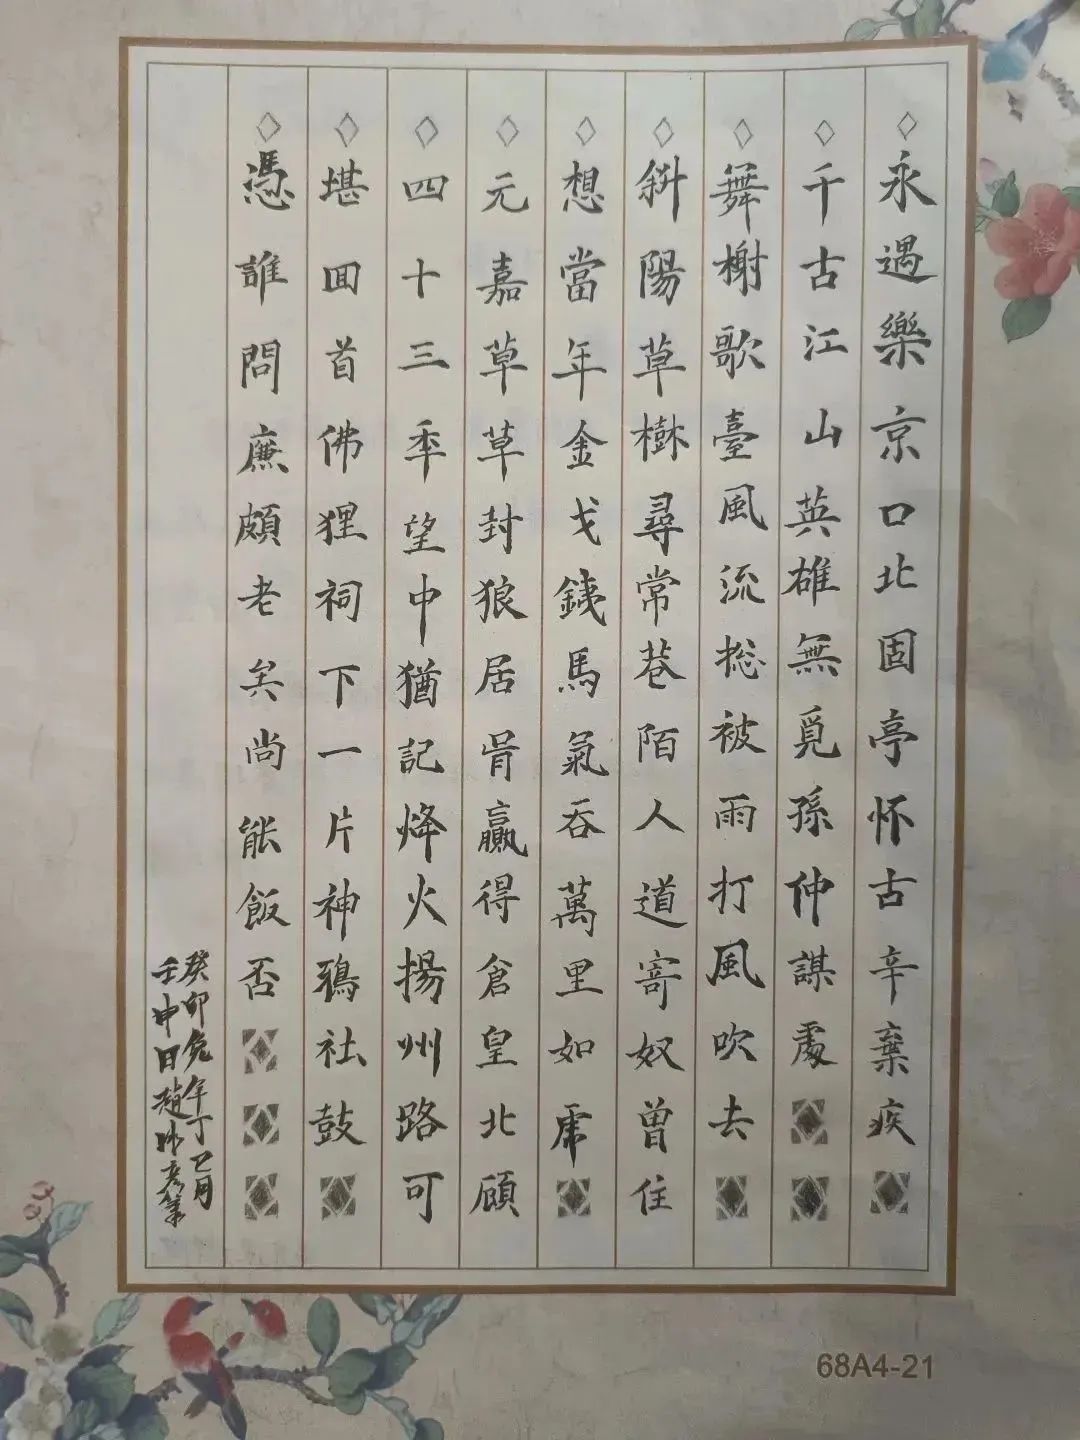 永遇樂京口北固亭怀古辛棄疾
千古江山英雄無覓孫仲謀處
舞榭歌臺風流捴被雨打風吹去
斜陽草樹尋常巷陌人道寄奴曾住
想當年金戈鐵馬氣吞萬里如虎
元嘉草草封狼居胥贏得倉皇北顧
四十三年望中猶記烽火揚州路可
堪回首佛狸祠下一片神鴉社鼓
憑誰問廉頗老矣尚能飯否
癸卯兔年丁巳月
壬申日趙
68A4-21